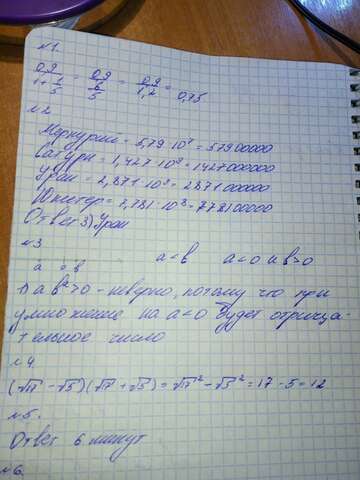 №1.
0,9 / 1+1/5 = 0,9 / 6/5 = 0,9 / 1,2 = 0,75
№2
Меркурий = 5,79·10⁷ = 57900000
Сатурн = 1,427·10⁹ = 1427000000
Уран = 2,871·10⁹ = 2871000000
Юпитер = 7,781·10⁸ = 778100000
Ответ 3) Уран
№3
a<b a<0 и b>0
a b
1) a b²>0 - неверно, потому что при
умножение на a<0 будет отрица-
тельное число
№4.
(√17 - √5)(√17 + √5) = √17² - √5² = 17 - 5 = 12
№5.
Ответ 6 минут
№6.